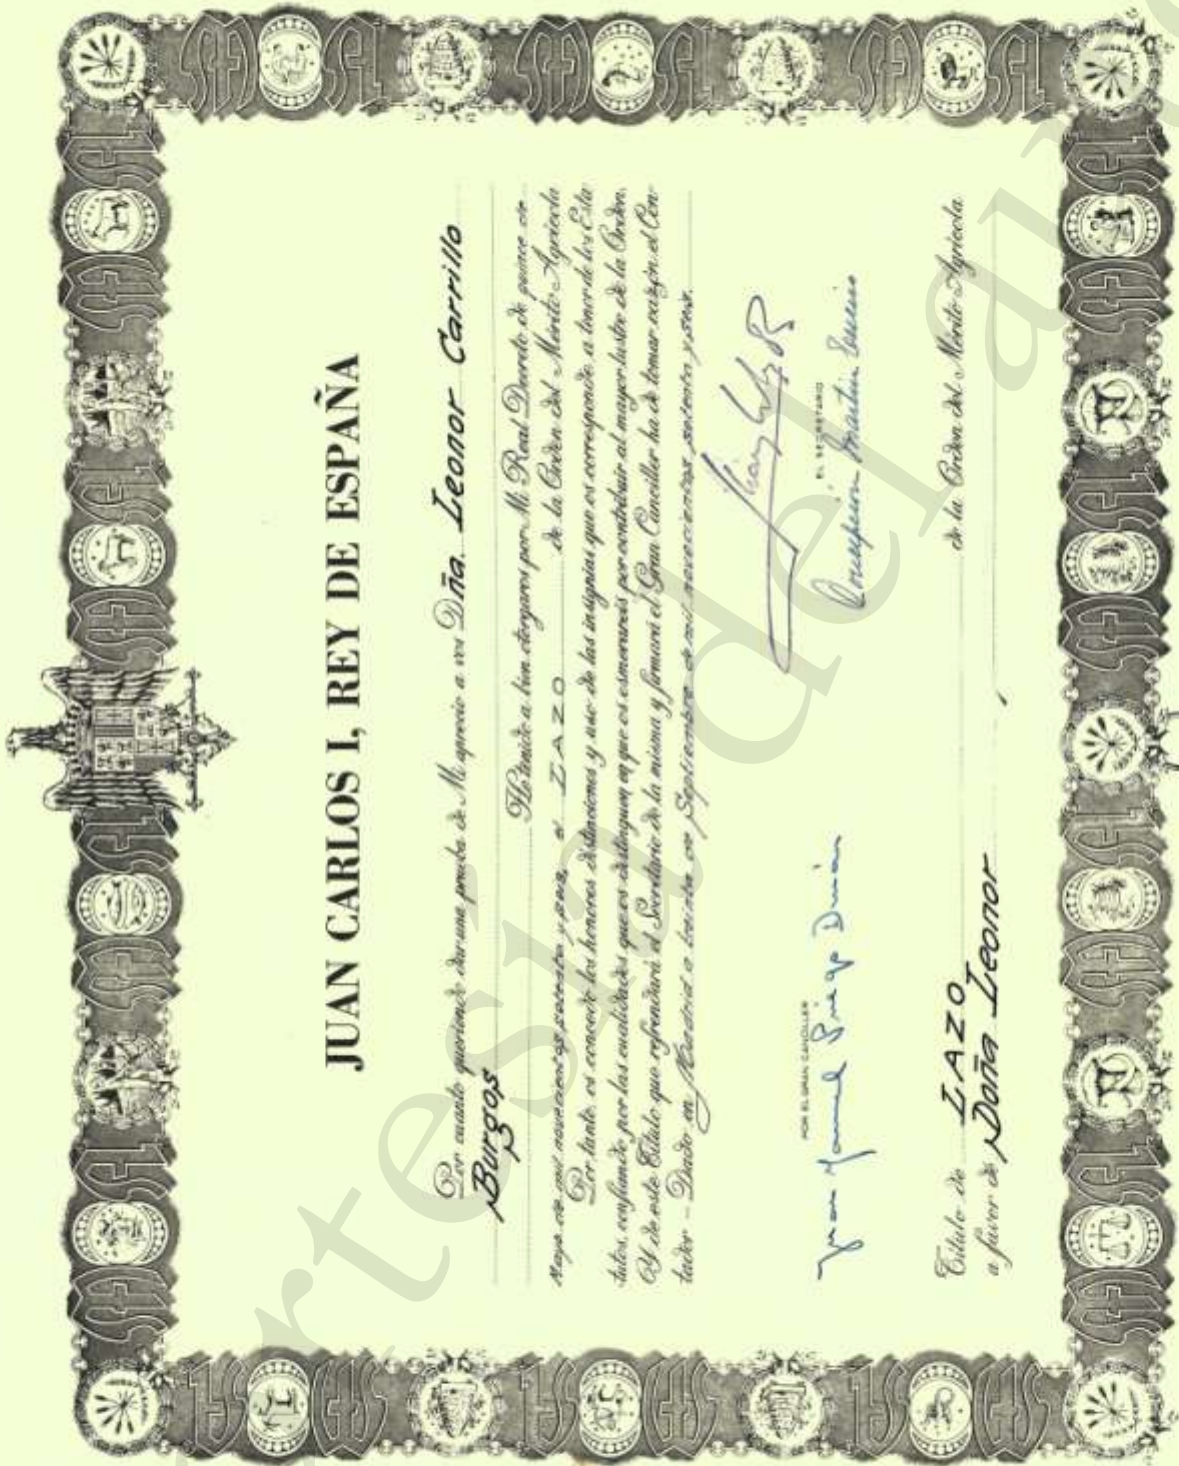 JUAN CARLOS I, REY DE ESPAÑA
Por cuanto queriendo dar una prueba de Mi aprecio a vos Dña. Leonor Carrillo
Burgos
He tenido a bien otorgaros por Mi Real Decreto de quince de
Mayo de mil novecientos setenta y seis, el LAZO de la Orden del Mérito Agrícola
Por tanto, os concedo los honores distinciones y uso de las insignias que os corresponde, a tenor de los Esta
tutos, confiando por las cualidades que os distinguen en que os esmeraréis por contribuir al mayor lustre de la Orden.
Y de este Título que refrendará el Secretario de la misma y firmará el Gran Canciller ha de tomar razón el Con
tador - Dado en Madrid a treinta de Septiembre de mil novecientos setenta y seis.
POR EL GRAN CANCILLER
EL SECRETARIO
Título de LAZO de la Orden del Mérito Agrícola
a favor de Doña Leonor
Cortesía del